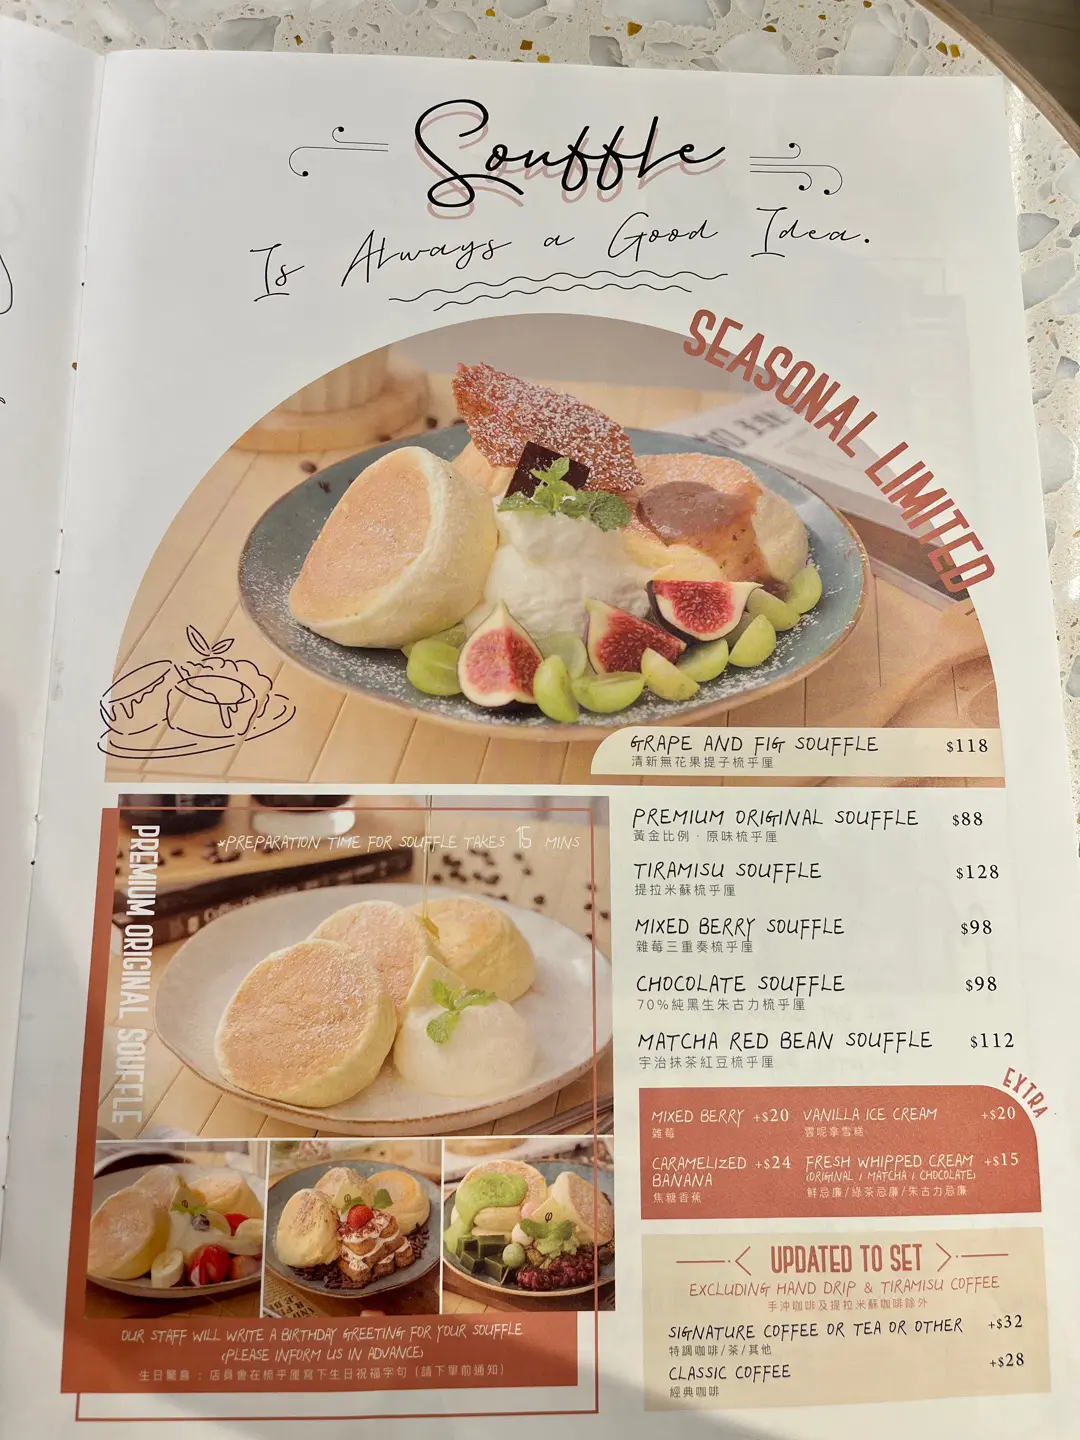 Souffle
Is Always a Good Idea.
SEASONAL LIMITED
GRAPE AND FIG SOUFFLE $118
清新無花果提子梳乎厘
*PREPARATION TIME FOR SOUFFLE TAKES 15 MINS
PREMIUM ORIGINAL SOUFFLE
PREMIUM ORIGINAL SOUFFLE $88
黃金比例·原味梳乎厘
TIRAMISU SOUFFLE $128
提拉米蘇梳乎厘
MIXED BERRY SOUFFLE $98
雜莓三重奏梳乎厘
CHOCOLATE SOUFFLE $98
70%純黑生朱古力梳乎厘
MATCHA RED BEAN SOUFFLE $112
宇治抹茶紅豆梳乎厘
EXTRA
MIXED BERRY +$20 VANILLA ICE CREAM +$20
雜莓 雲呢拿雪糕
CARAMELIZED +$24 FRESH WHIPPED CREAM +$15
BANANA (ORIGINAL / MATCHA / CHOCOLATE)
焦糖香蕉 鮮忌廉/綠茶忌廉/朱古力忌廉
UPDATED TO SET
EXCLUDING HAND DRIP & TIRAMISU COFFEE
手沖咖啡及提拉米蘇咖啡除外
SIGNATURE COFFEE OR TEA OR OTHER +$32
特調咖啡/茶/其他
CLASSIC COFFEE +$28
經典咖啡
OUR STAFF WILL WRITE A BIRTHDAY GREETING FOR YOUR SOUFFLE
(PLEASE INFORM US IN ADVANCE)
生日驚喜：店員會在梳乎厘寫下生日祝福字句（請下單前通知）